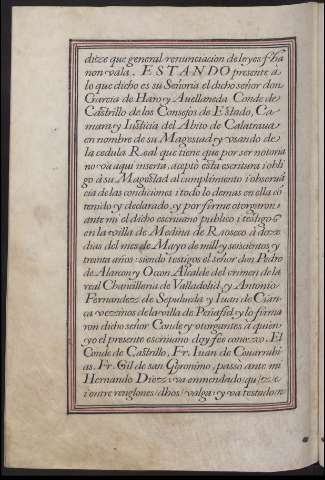 dize que general renunciacion de leyes fha
non vala. ESTANDO presente a
lo que dicho es su Señoria el dicho señor don
Garcia de Haro y Auellaneda Conde de
Castrillo de los Consejos de Estado, Ca
mara y Iusticia del Abito de Calatraua
en nombre de su Magestad y vsando de
la cedula Real que tiene que por ser notoria
no va aqui inserta, acepto esta escritura i obli
go a su Magestad al cumplimiento i obserua
cia de las condiciones i todo lo demas en ella co
tenido y declarado, y por firme otorgaron
ante mi el dicho escriuano publico i testigos
en la villa de Medina de Rioseco à doze
dias del mes de Mayo de mill y seiscientos y
treinta años: siendo testigos el señor don Pedro
de Alarcon y Ocon Alcalde del crimen de la
real Chancilleria de Valladolid, y Antonio
Fernandez de Sepulueda y Iuan de Cian
ca vezinos de la villa de Peñafiel y lo firma
ron dicho señor Conde y otorgantes à quien
yo el presente escriuano doy fee conozco. El
Conde de Castrillo, Fr. Iuan de Couarrubi
as. Fr. Gil de san Geronimo, passò ante mi
Hernando Diez va enmendado
i entre renglones dhos valga y va testado